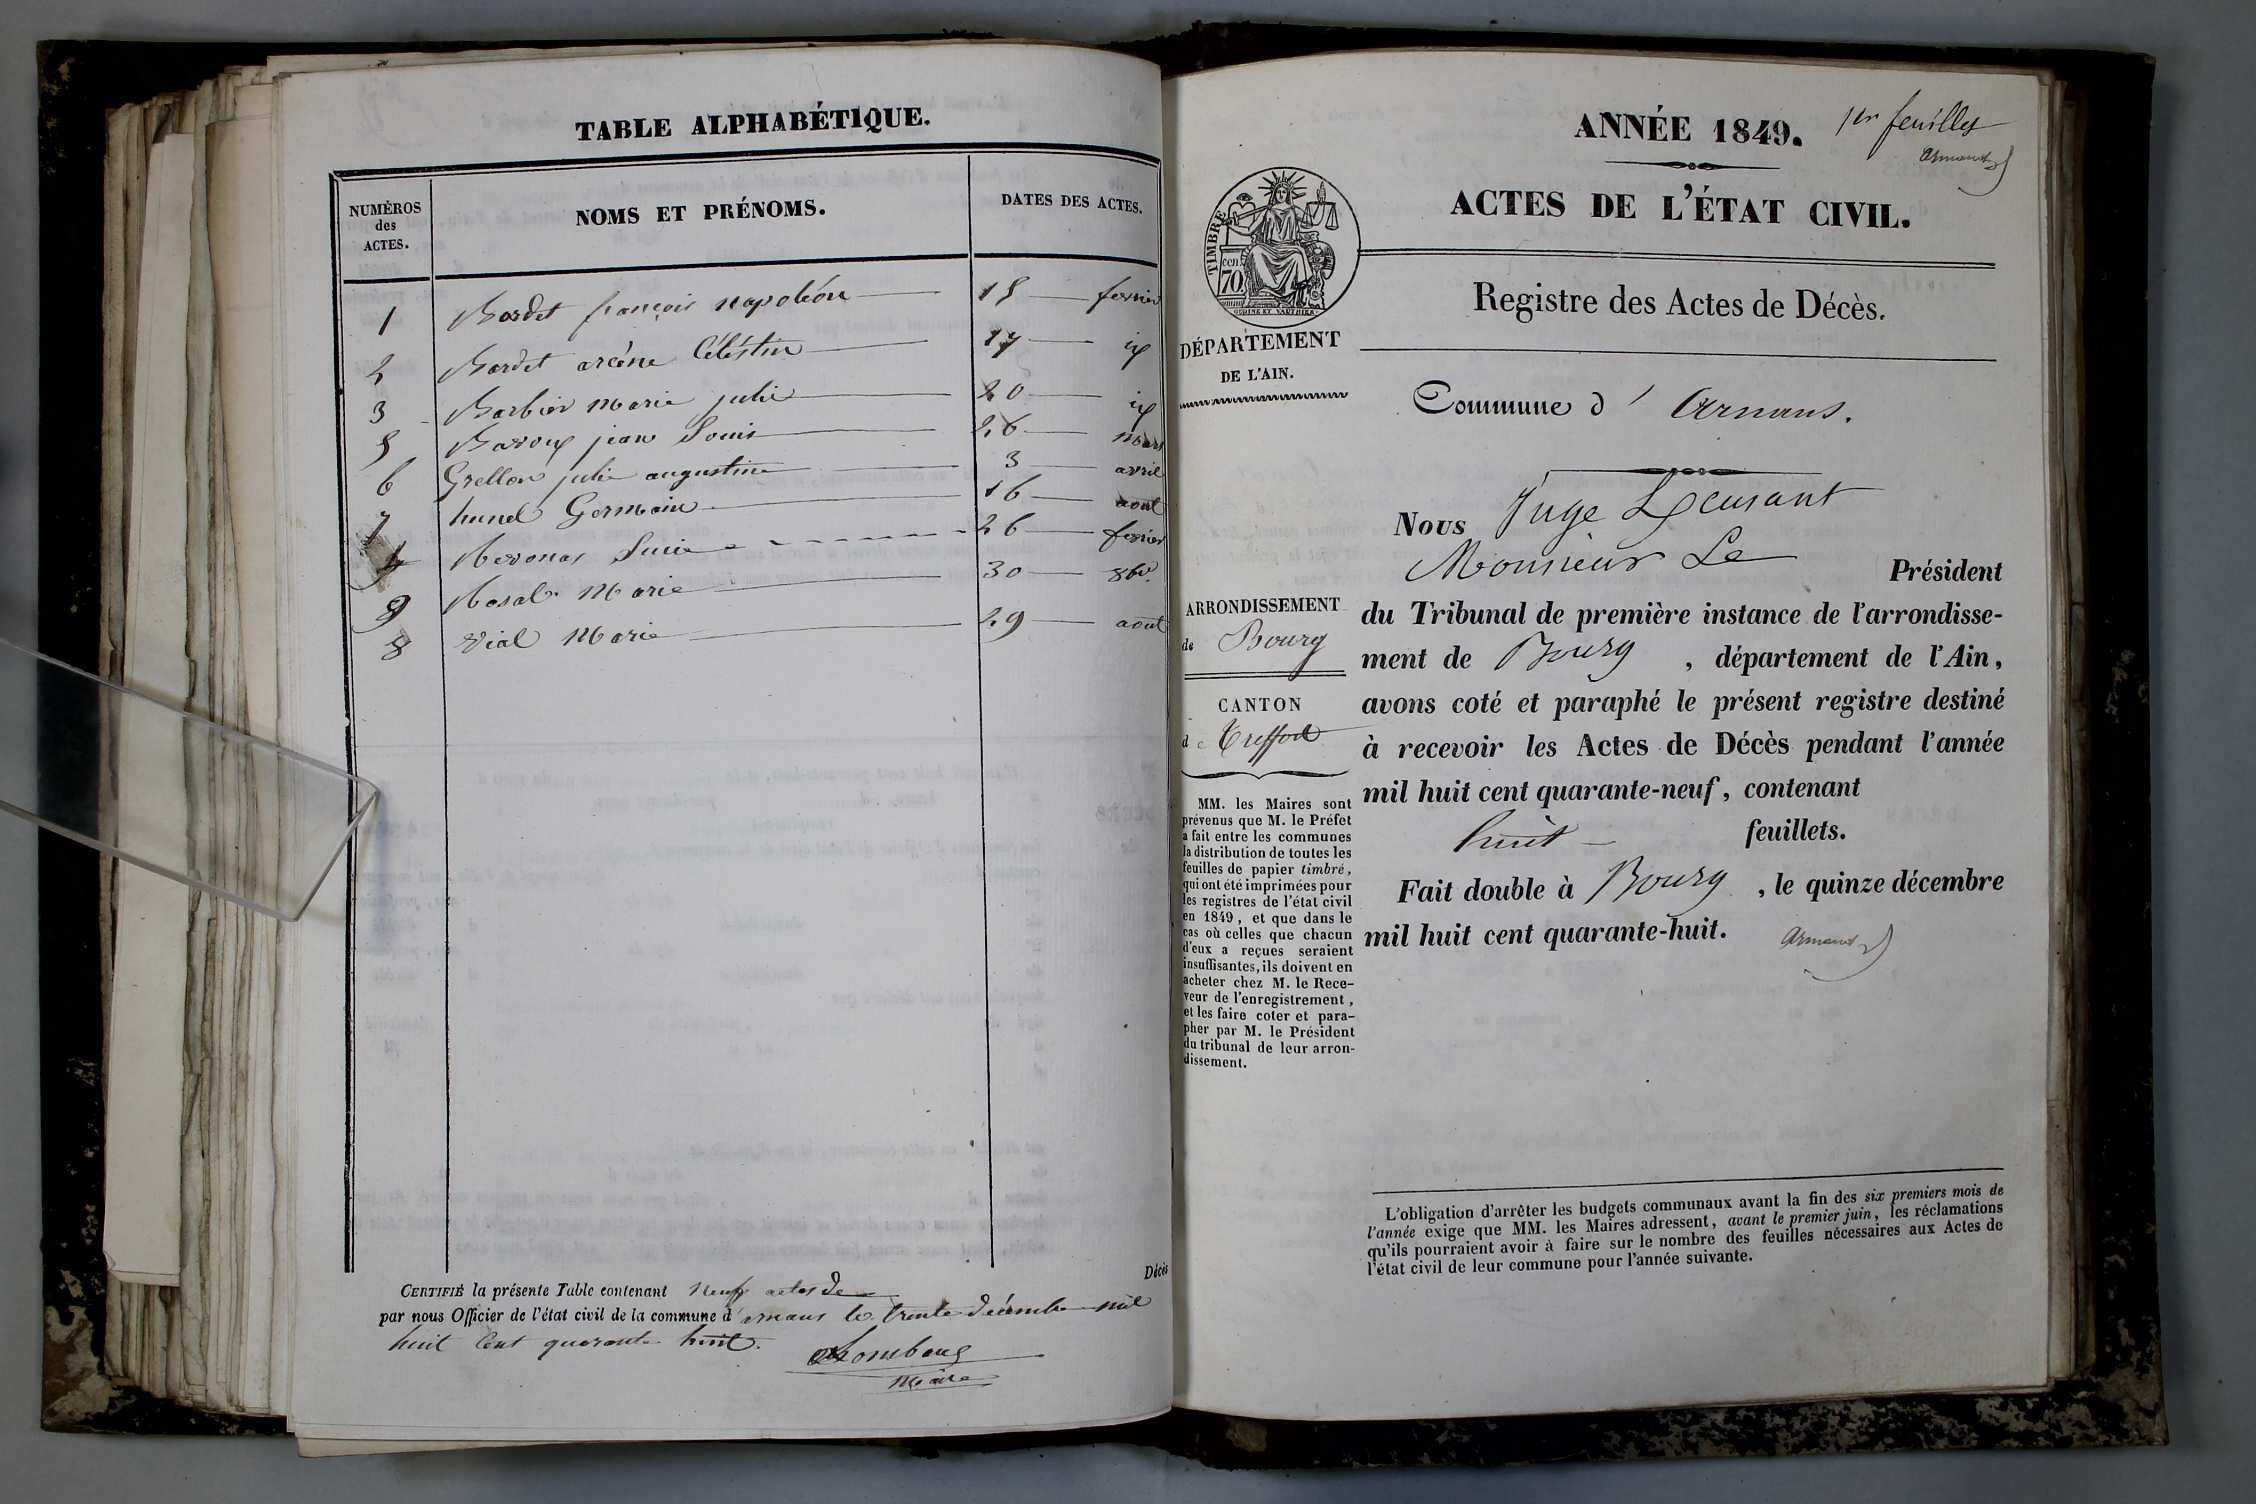 TABLE ALPHABÉTIQUE.
NUMÉROS des ACTES. NOMS ET PRÉNOMS. DATES DES ACTES.
1 Bordet françois napoléon 15 fevrier
2 Bordet arcéne Céléstin 17 id
3 Barbier Marie julie 20 id
5 Baroux jean Louis 26 Mars
6 Grellon julie augustine 3 avril
7 hunel Germain 16 aout
4 Lucie 26 fevrier
9 Marie 30 8bre
8 Vial Marie 29 aout
Décès
CERTIFIÉ la présente Table contenant neuf actes de
par nous Officier de l'état civil de la commune d'arnans le trente décembre mil
huit Cent quarante huit.
Maire
ANNÉE 1849.
1er feuillet
Armand
ACTES DE L'ÉTAT CIVIL.
TIMBRE
cen. 70.
OUDINE ET VAUTHIER
Registre des Actes de Décès.
DÉPARTEMENT
DE L'AIN.
Commune d'Arnans.
Nous Juge
Monsieur Le Président
du Tribunal de première instance de l'arrondisse-
ment de Bourg, département de l'Ain,
avons coté et paraphé le présent registre destiné
à recevoir les Actes de Décès pendant l'année
mil huit cent quarante-neuf, contenant
huit feuillets.
Fait double à Bourg, le quinze décembre
mil huit cent quarante-huit.
Armand
ARRONDISSEMENT
de Bourg
CANTON
de Treffort
MM. les Maires sont
prévenus que M. le Préfet
a fait entre les communes
la distribution de toutes les
feuilles de papier timbré,
qui ont été imprimées pour
les registres de l'état civil
en 1849, et que dans le
cas où celles que chacun
d'eux a reçues seraient
insuffisantes, ils doivent en
acheter chez M. le Rece-
veur de l'enregistrement,
et les faire coter et para-
pher par M. le Président
du tribunal de leur arron-
dissement.
L'obligation d'arrêter les budgets communaux avant la fin des six premiers mois de
l'année exige que MM. les Maires adressent, avant le premier juin, les réclamations
qu'ils pourraient avoir à faire sur le nombre des feuilles nécessaires aux Actes de
l'état civil de leur commune pour l'année suivante.